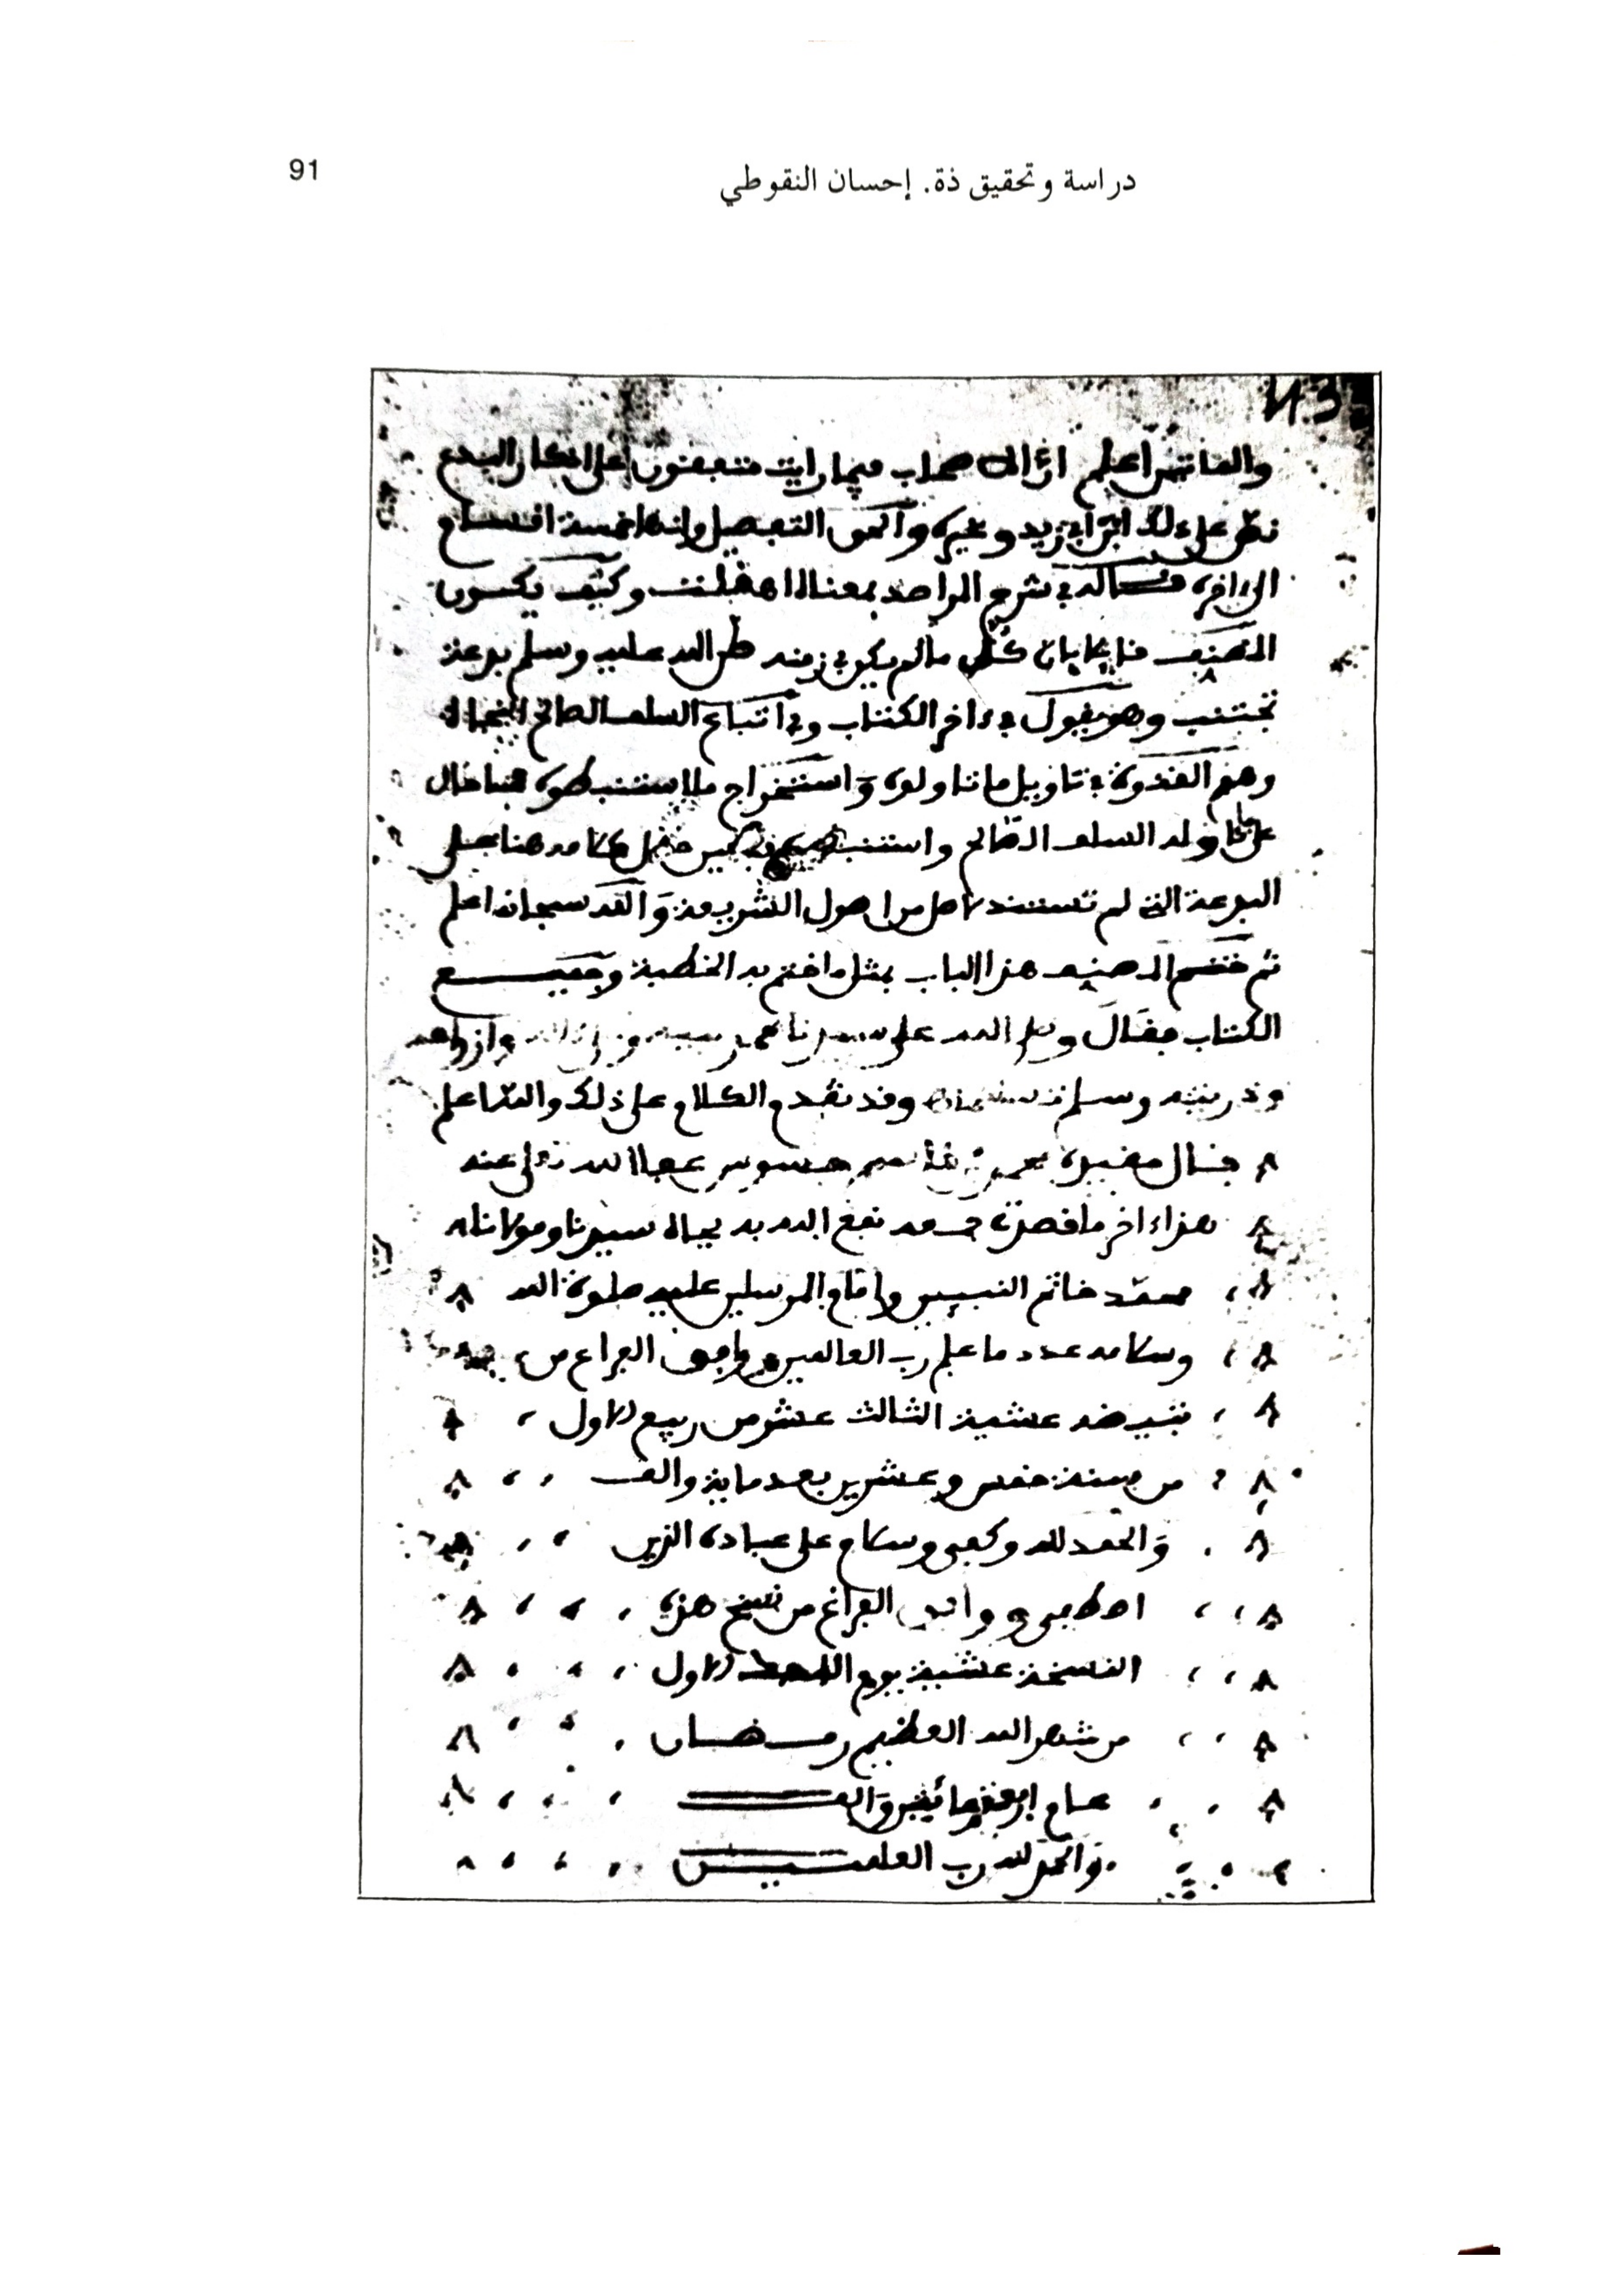 91
دراسة وتحقيق ذة. إحسان النقوطي
اعلم ان الاصحاب فيما رايت متفقون على انكار البدع
نص على ذلك ابن ابي زيد وغيره والحق التفصيل وانها خمسة اقسام
الى ءاخره في شرح المراصد بمعناه وكيف يكون
المصنف كل ما لم يكن في زمنه صلى الله عليه وسلم بدعة
تجتنب وهو يقول في ءاخر الكتاب وفي اتباع السلف الصالح النجاة
وهم القدوة في تاويل ما تاولوه واستخراج ما استنبطوه
السلف الصالح كلامه هنا على
البدعة التي لم تستند لاصل من اصول الشريعة والله سبحانه اعلم
ثم ختم المصنف هذا الباب بمثل ما ختم به الخطبة وجميع
الكتاب فقال وصلى الله على سيدنا محمد وازواجه
وذريته وسلم وقد تقدم الكلام على ذلك والله اعلم
قال مقيده محمد بن قاسم جسوس عفا الله تعالى عنه
هذا ءاخر ما قصدت جمعه نفع الله به بجاه سيدنا ومولانا
محمد خاتم النبيين وامام المرسلين عليه صلوة الله
وسلامه عدد ما علم رب العالمين ووافق الفراغ من
تبييضه عشية الثالث عشر من ربيع الاول
من سنة خمس وعشرين بعد ماية والف
والحمد لله وكفى وسلام على عباده الذين
اصطفى ووافق الفراغ من نسخ هذه
النسخة عشية يوم الاول
من شهر الله العظيم رمضان
عام مائتين والف
والحمد لله رب العلمين